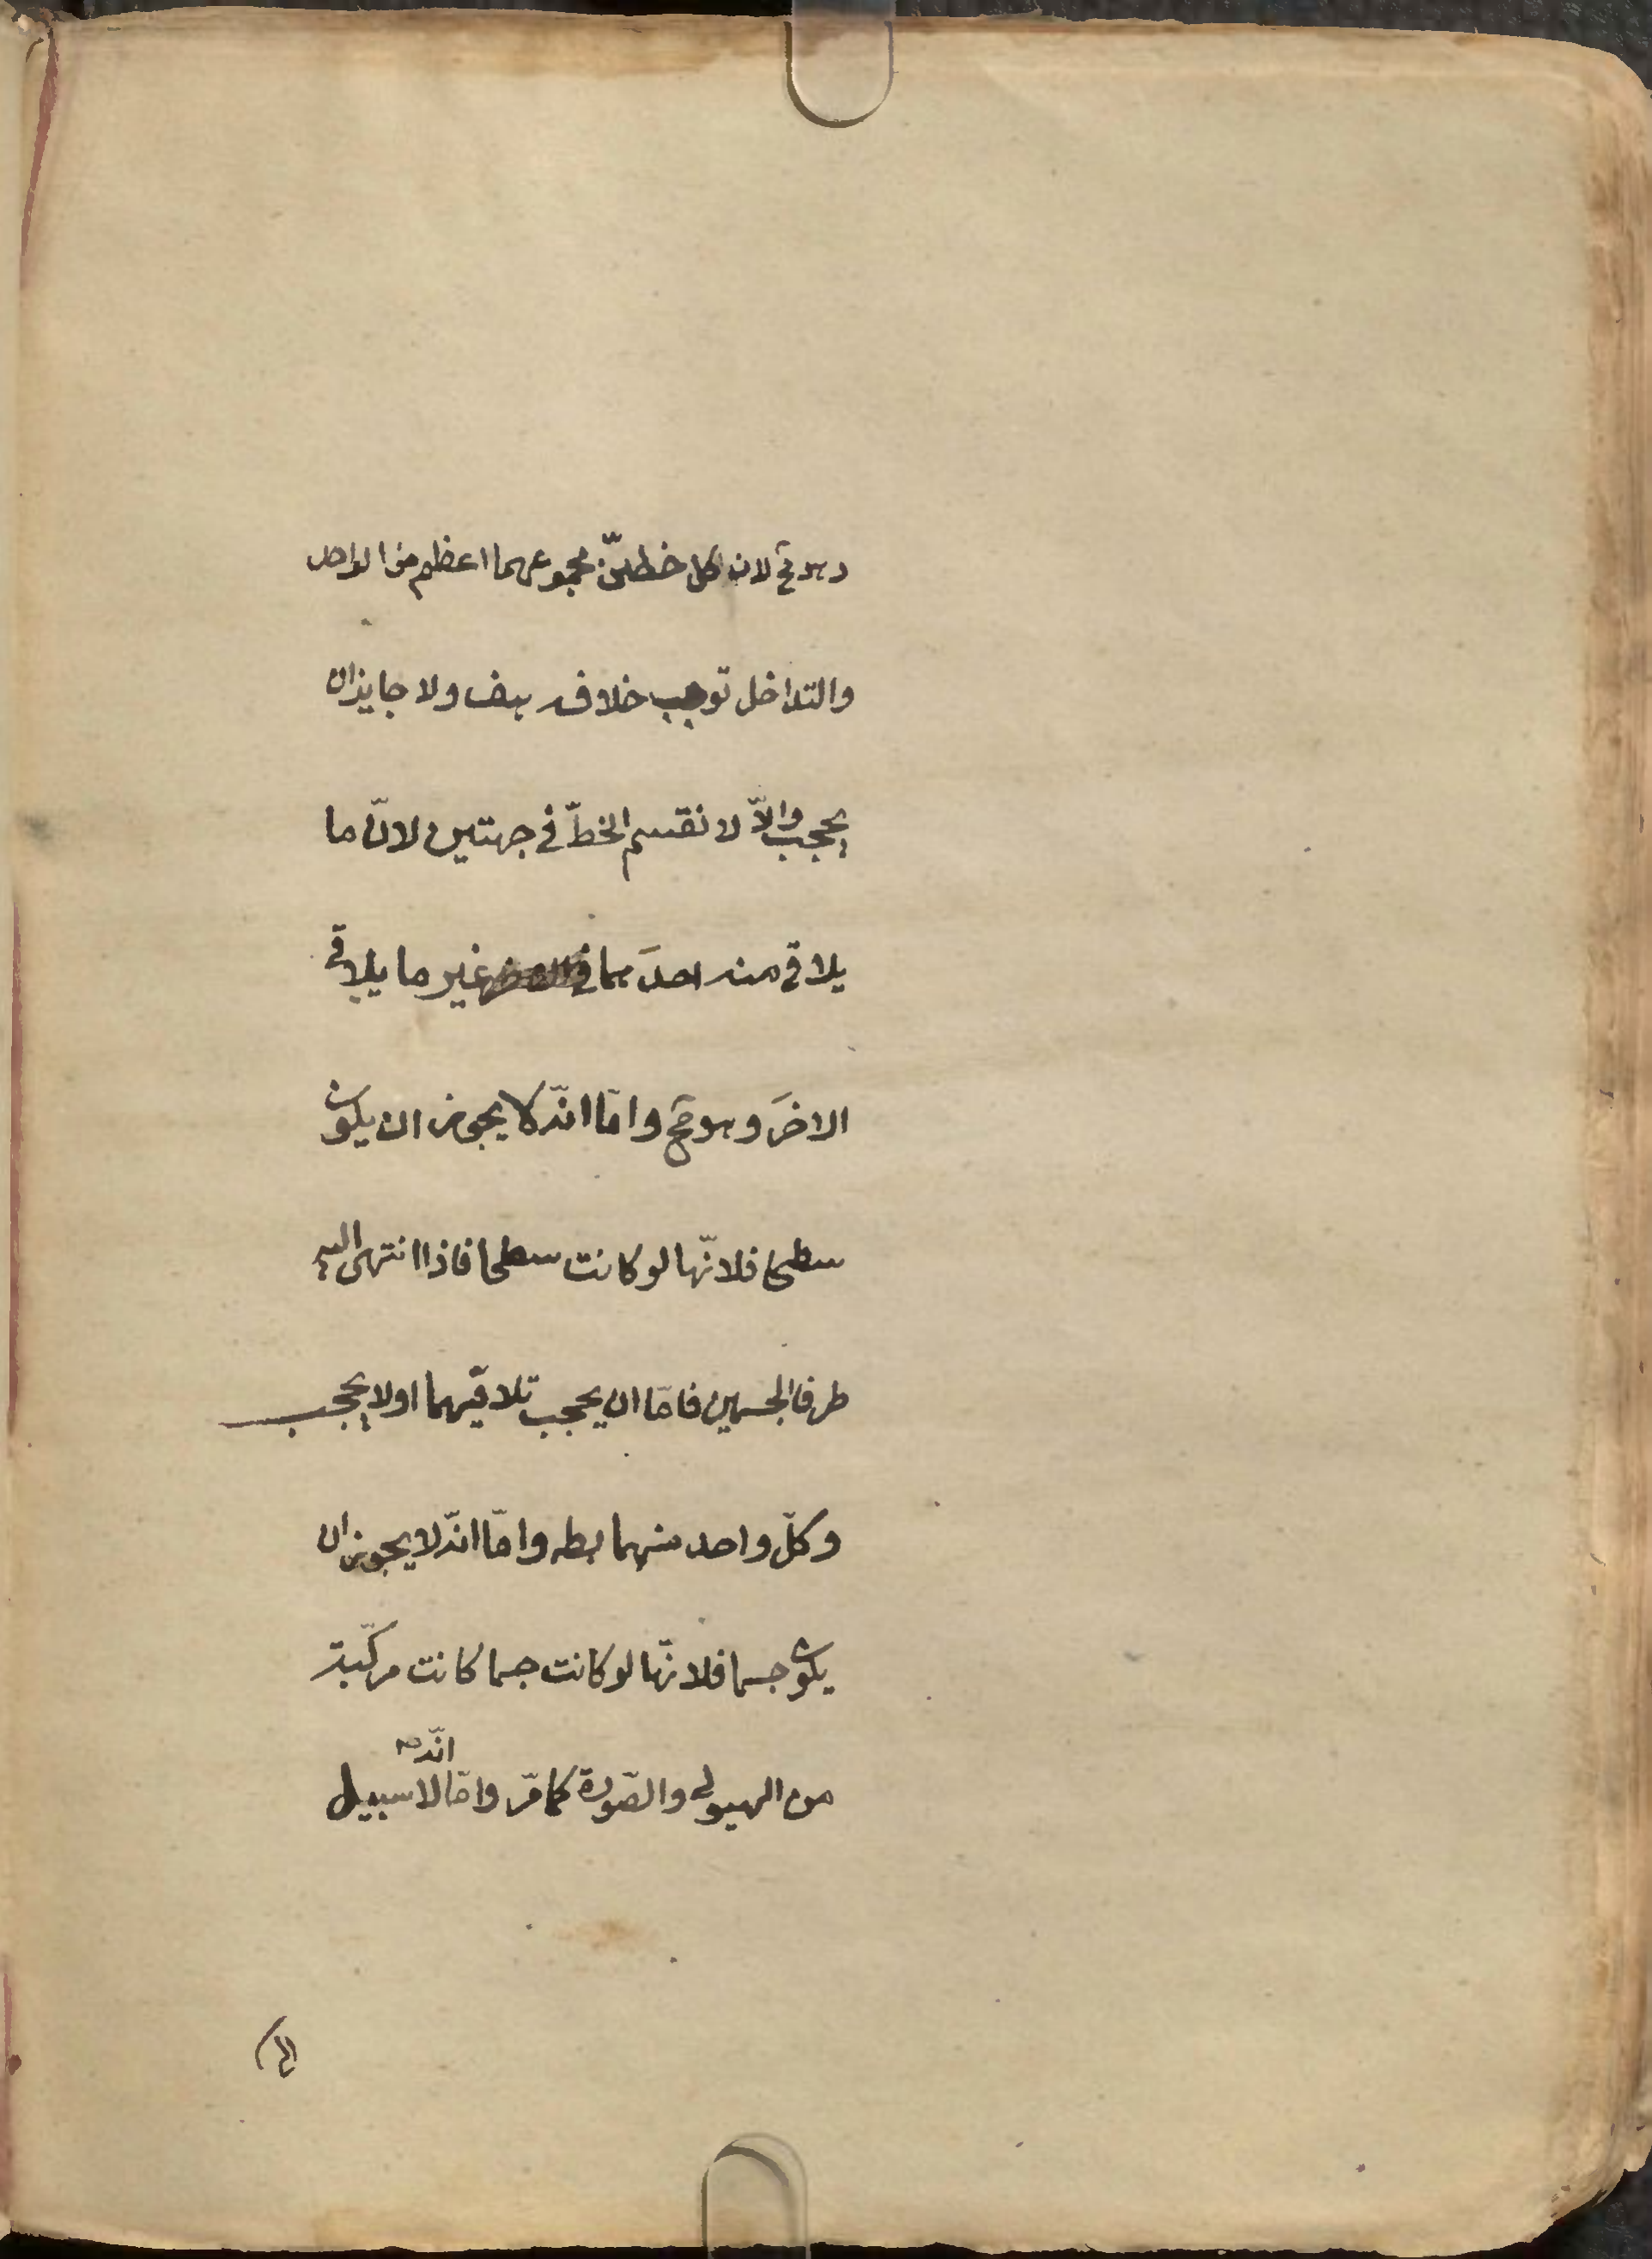 وهو مح لان كل خطين مجموعهما اعظم من الواحد
والتداخل توجب خلافه هف ولا جايز ان
يحجب والّا لانقسم الخطّ في جهتين لانّ ما
يلاقي منه احدهما غير ما يلاقي
الاخر وهو مح وامّا انّه لا يجوز ان يكون
سطحا فلانّها لو كانت سطحا فاذا انتهى اليه
طرفا الجسمين فامّا ان يحجب تلاقيهما او لا يحجب
وكلّ واحد منهما بط وامّا انّه لا يجوز ان
يكون جسما فلانّها لو كانت جسما كانت مركّبة
من الهيولى والصّورة كما مرّ وامّا انّه لا سبيل
الى